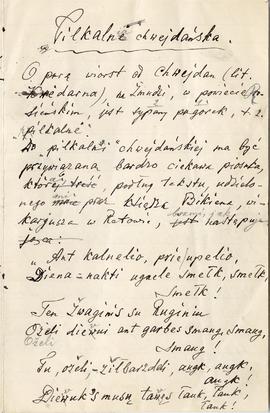 Pilkalnė chwejdańska.
O parę wiorst od Chwejdan (lit.
), na Żmudzi, w powiecie Ro-
sieńskim, jest sypany pagórek, t. z.
pilkalnė.
Do pilkalni chwejdańskiej ma być
przywiązana bardzo ciekawa piosnka,
której treść, podług tekstu, udzielo-
nego mnie przez księdza Bikiena, wi-
karjusza w Retowi, jest następują-
„Ant kalnelio, prie upelio,
Diena-nakti ugnelė Smelk, Smelk,
Smelk!
Ten Żwagins su Ruginiu
Ożeli diežni ant garbes smaug, smaug,
Ożeli
Smaug!
Tu, ożeli-żilbarzdėli, augk, augk,
augk!
musų Tauk, Tauk,
Tauk!